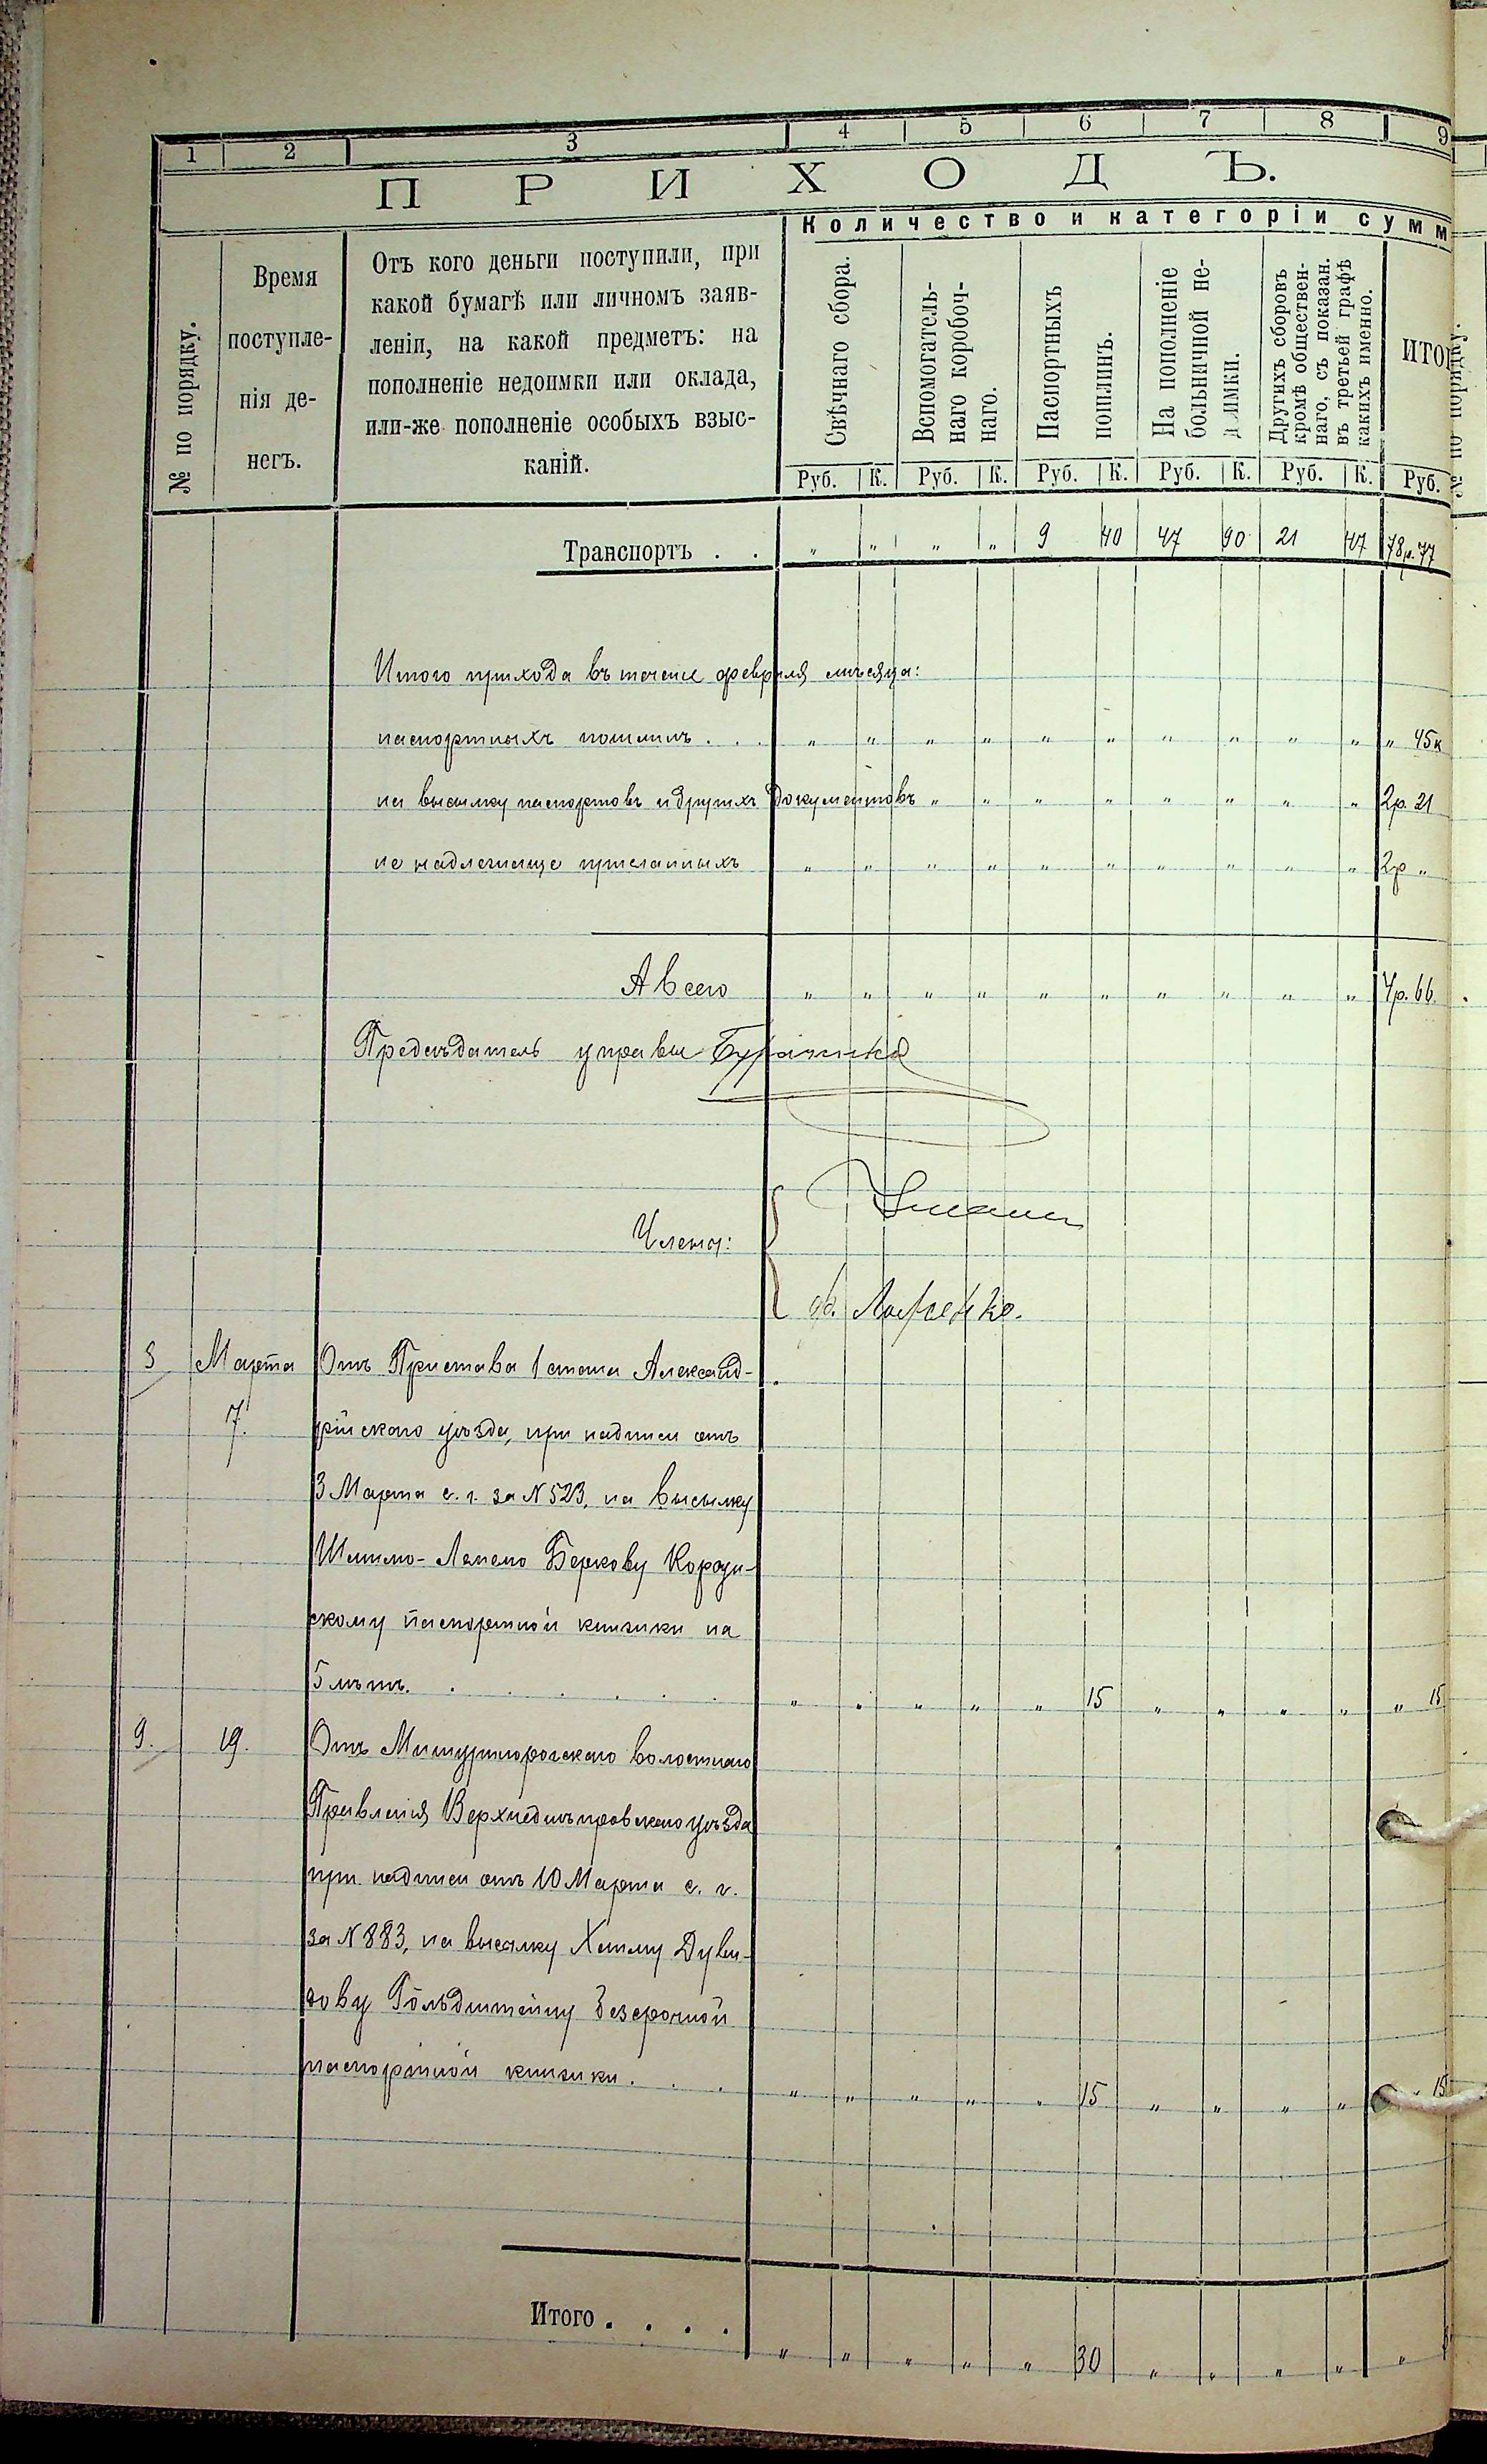 1 2 3 4 5 6 7 8 9
ПРИХОДЪ.
Количество и категоріи сумм
№ по порядку.
Время
поступле-
нія де-
негъ.
Отъ кого деньги поступили, при
какой бумагѣ или личномъ заяв-
леніи, на какой предметъ: на
пополненіе недоимки или оклада,
или-же пополненіе особыхъ взыс-
каній.
Свѣчнаго сбора.
Вспомогатель-
наго коробоч-
наго.
Паспортныхъ
пошлинъ.
На пополненіе
больничной не-
доимки.
Другихъ сборовъ
кромѣ обществен-
наго, съ показан.
въ третьей графѣ
какихъ именно.
ИТОГ
№ по порядку.
Руб. К. Руб. К. Руб. К. Руб. К. Руб. К. Руб.
Транспортъ . . " " " " 9 40 47 90 21 47 78р. 77
Итого прихода въ течение февраля мѣсяца:
паспортныхъ пошлинъ . . . " " " " " " " " " " " 45к
на высылку паспортовъ и другихъ документовъ " " " " " " " " 2р. 21
не надлежаще присланныхъ " " " " " " " " " " 2р "
А всего " " " " " " " " " " 4р. 66.
Предсѣдатель управы
Члены:
8 Марта Отъ Пристава 1 стана Александ-
7. рійскаго уѣзда, при надписи отъ
3 Марта с. г. за № 523, на высылку
Беркову
скому паспортной книжки на
5 лѣтъ. . . . . . . " " " " " 15 " " " " " 15
9. 19. Отъ Мишуринорогскаго волостнаго
Правленія Верхнеднѣпровскаго уѣзда
при надписи отъ 10 Марта с. г.
за № 883, на высылку Хаиму Дуви-
дову Гольдштейну безсрочной
паспортной книжки . . . " " " " " 15 " " " " " 15
Итого . . . . " " " " " 30 " " " " "